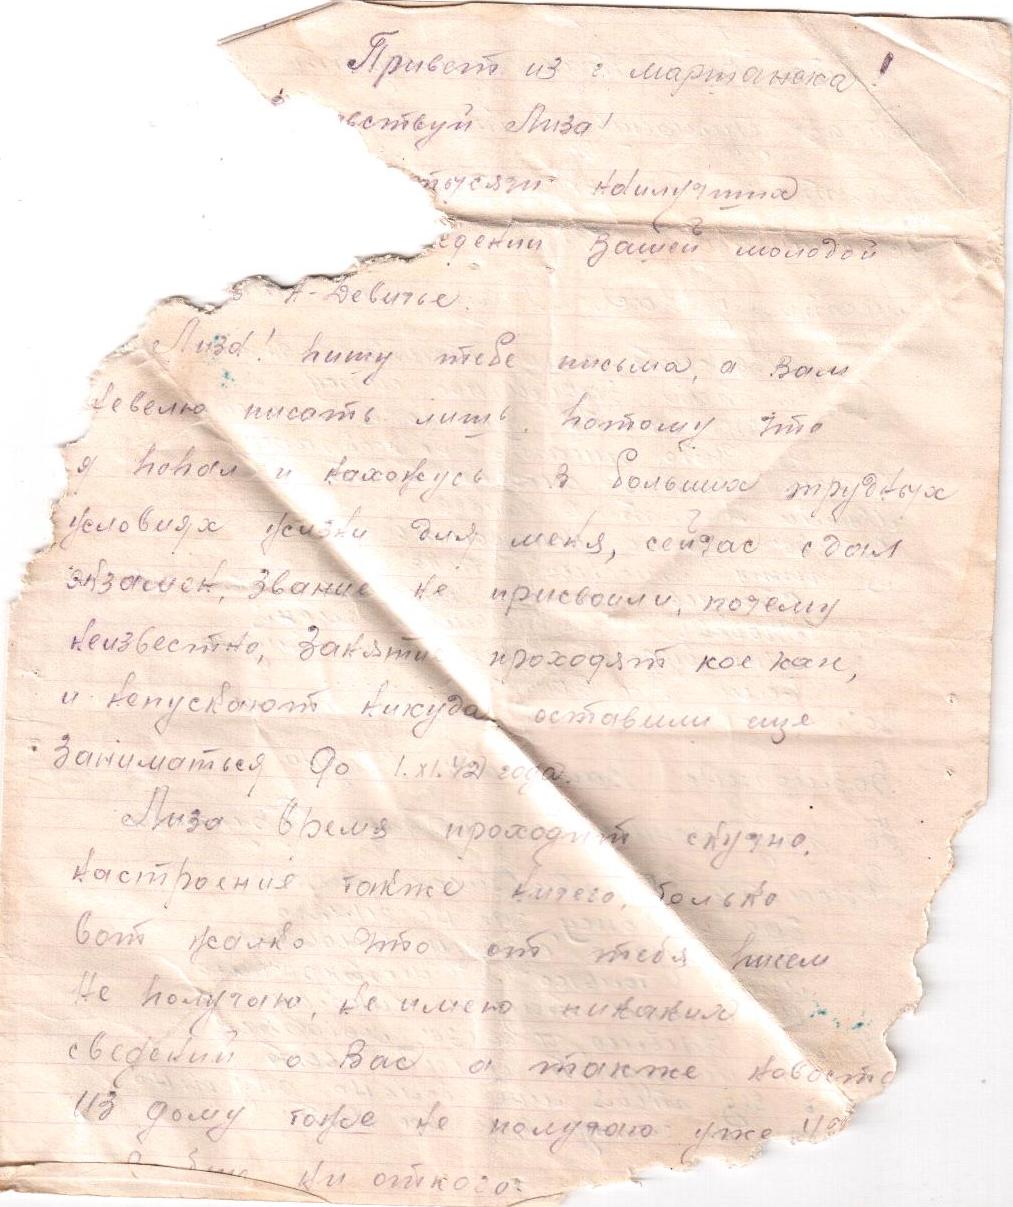 Привет из г. мартанска!
вствуй Лиза!
тысячи наилучших
едении Вашей молодой
в Н-Девичье.
Лиза! пишу тебе письма, а вам
невелю писать лишь потому что
я попал и нахожусь в больших трудных
условиях жизни для меня, сейчас сдал
экзамен, звание не присвоили, почему
неизвестно, Занятие проходят кое как,
и непускают никуда оставили еще
Заниматься до 1.XI.42 года.
Лиза время проходит скучно,
настроения также ничего, только
вот жалко что от тебя писем
не получаю, не имею никаких
сведений о Вас а также новосте
из дому тоже не получаю уже
ни откого.